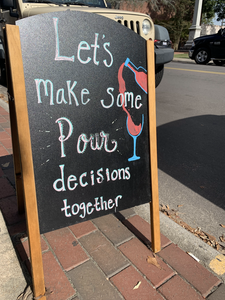 Let's
make some
Pour
decisions
together